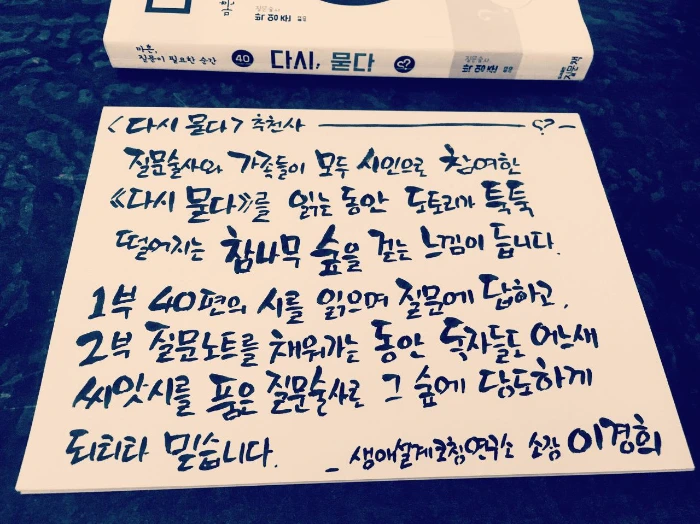 마흔,
질문이 필요한 순간 40 다시, 묻다
질문술사
박영준
질문술사
박영준
질문책
<다시 묻다> 추천사
질문술사와 가족들이 모두 시인으로 참여한
《다시 묻다》를 읽는 동안 도토리가 툭툭
떨어지는 참나무 숲을 걷는 느낌이 듭니다.
1부 40편의 시를 읽으며 질문에 답하고,
2부 질문노트를 채워가는 동안 독자들도 어느새
씨앗시를 품은 질문술사로 그 숲에 당도하게
되리라 믿습니다.
_ 생애설계코칭연구소 소장 이경희